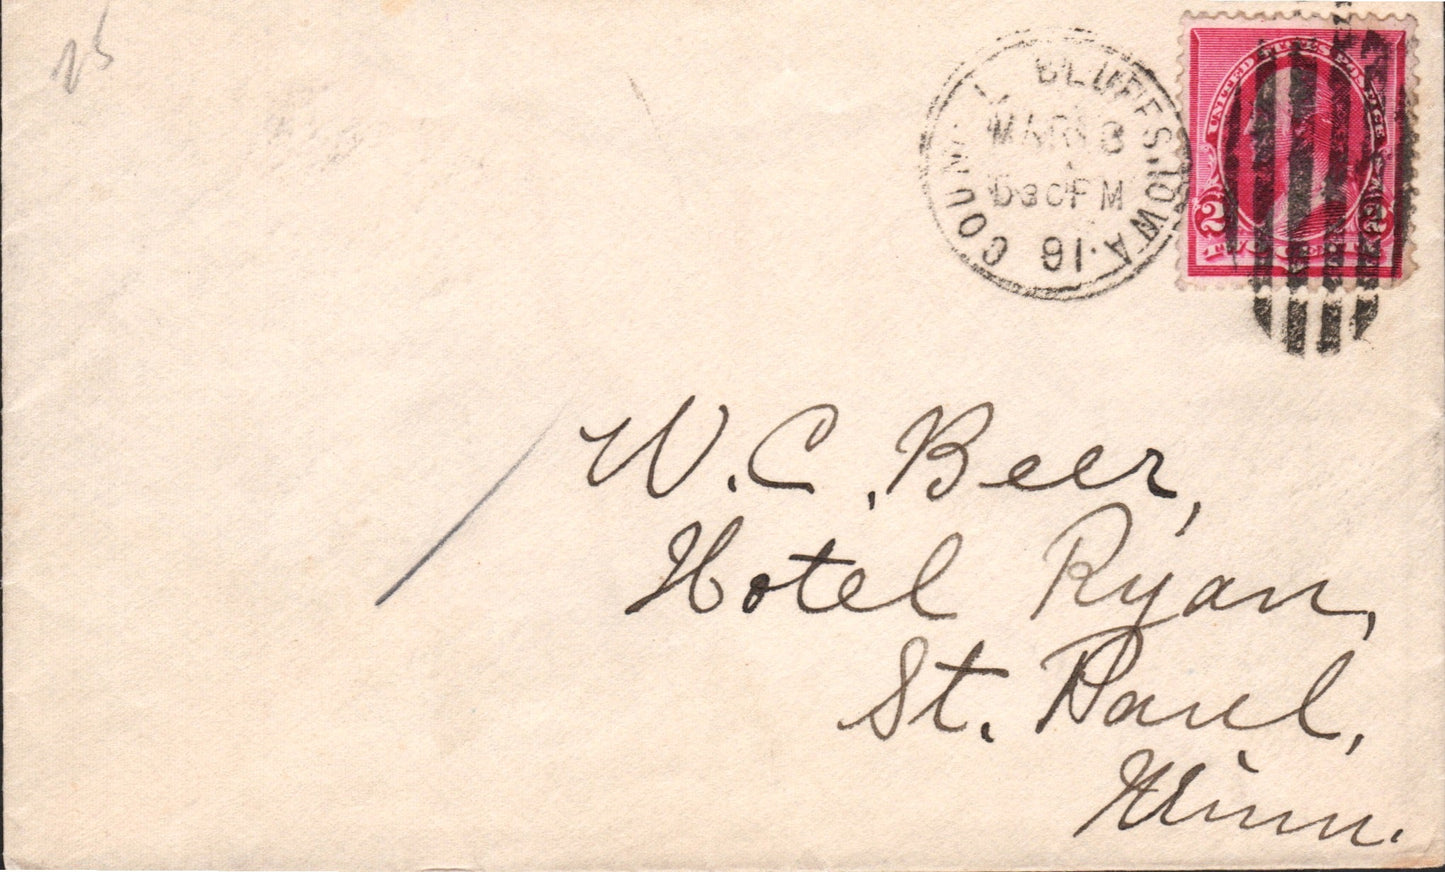 25
UNITED STATES POSTAGE
2 2
TWO CENTS
COUN L BLUFFS. IOWA.
MAR 3
30PM
91
W. C. Beer,
Hotel Ryan,
St. Paul,
Minn.